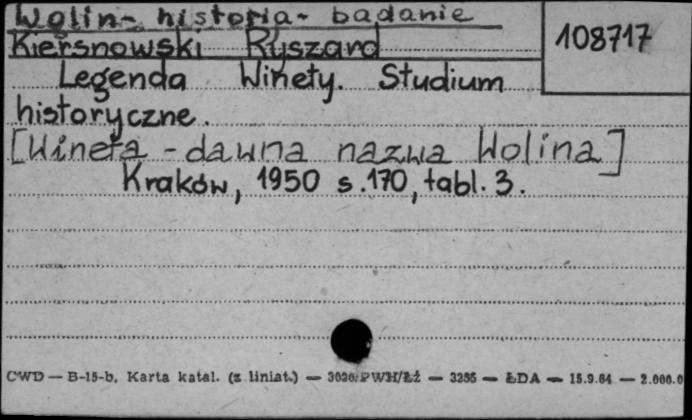 Wolin - historia - badanie
Kiersnowski Ryszard
108717
Legenda Winety. Studium
historyczne.
[Wineta - dawna nazwa Wolina]
Kraków, 1950 s. 170, tabl. 3.
CWD — B-15-b, Karta katal. (z liniat.) — 3020/PWH/Łź — 3255 — ŁDA — 15.9.64 — 2.000.0